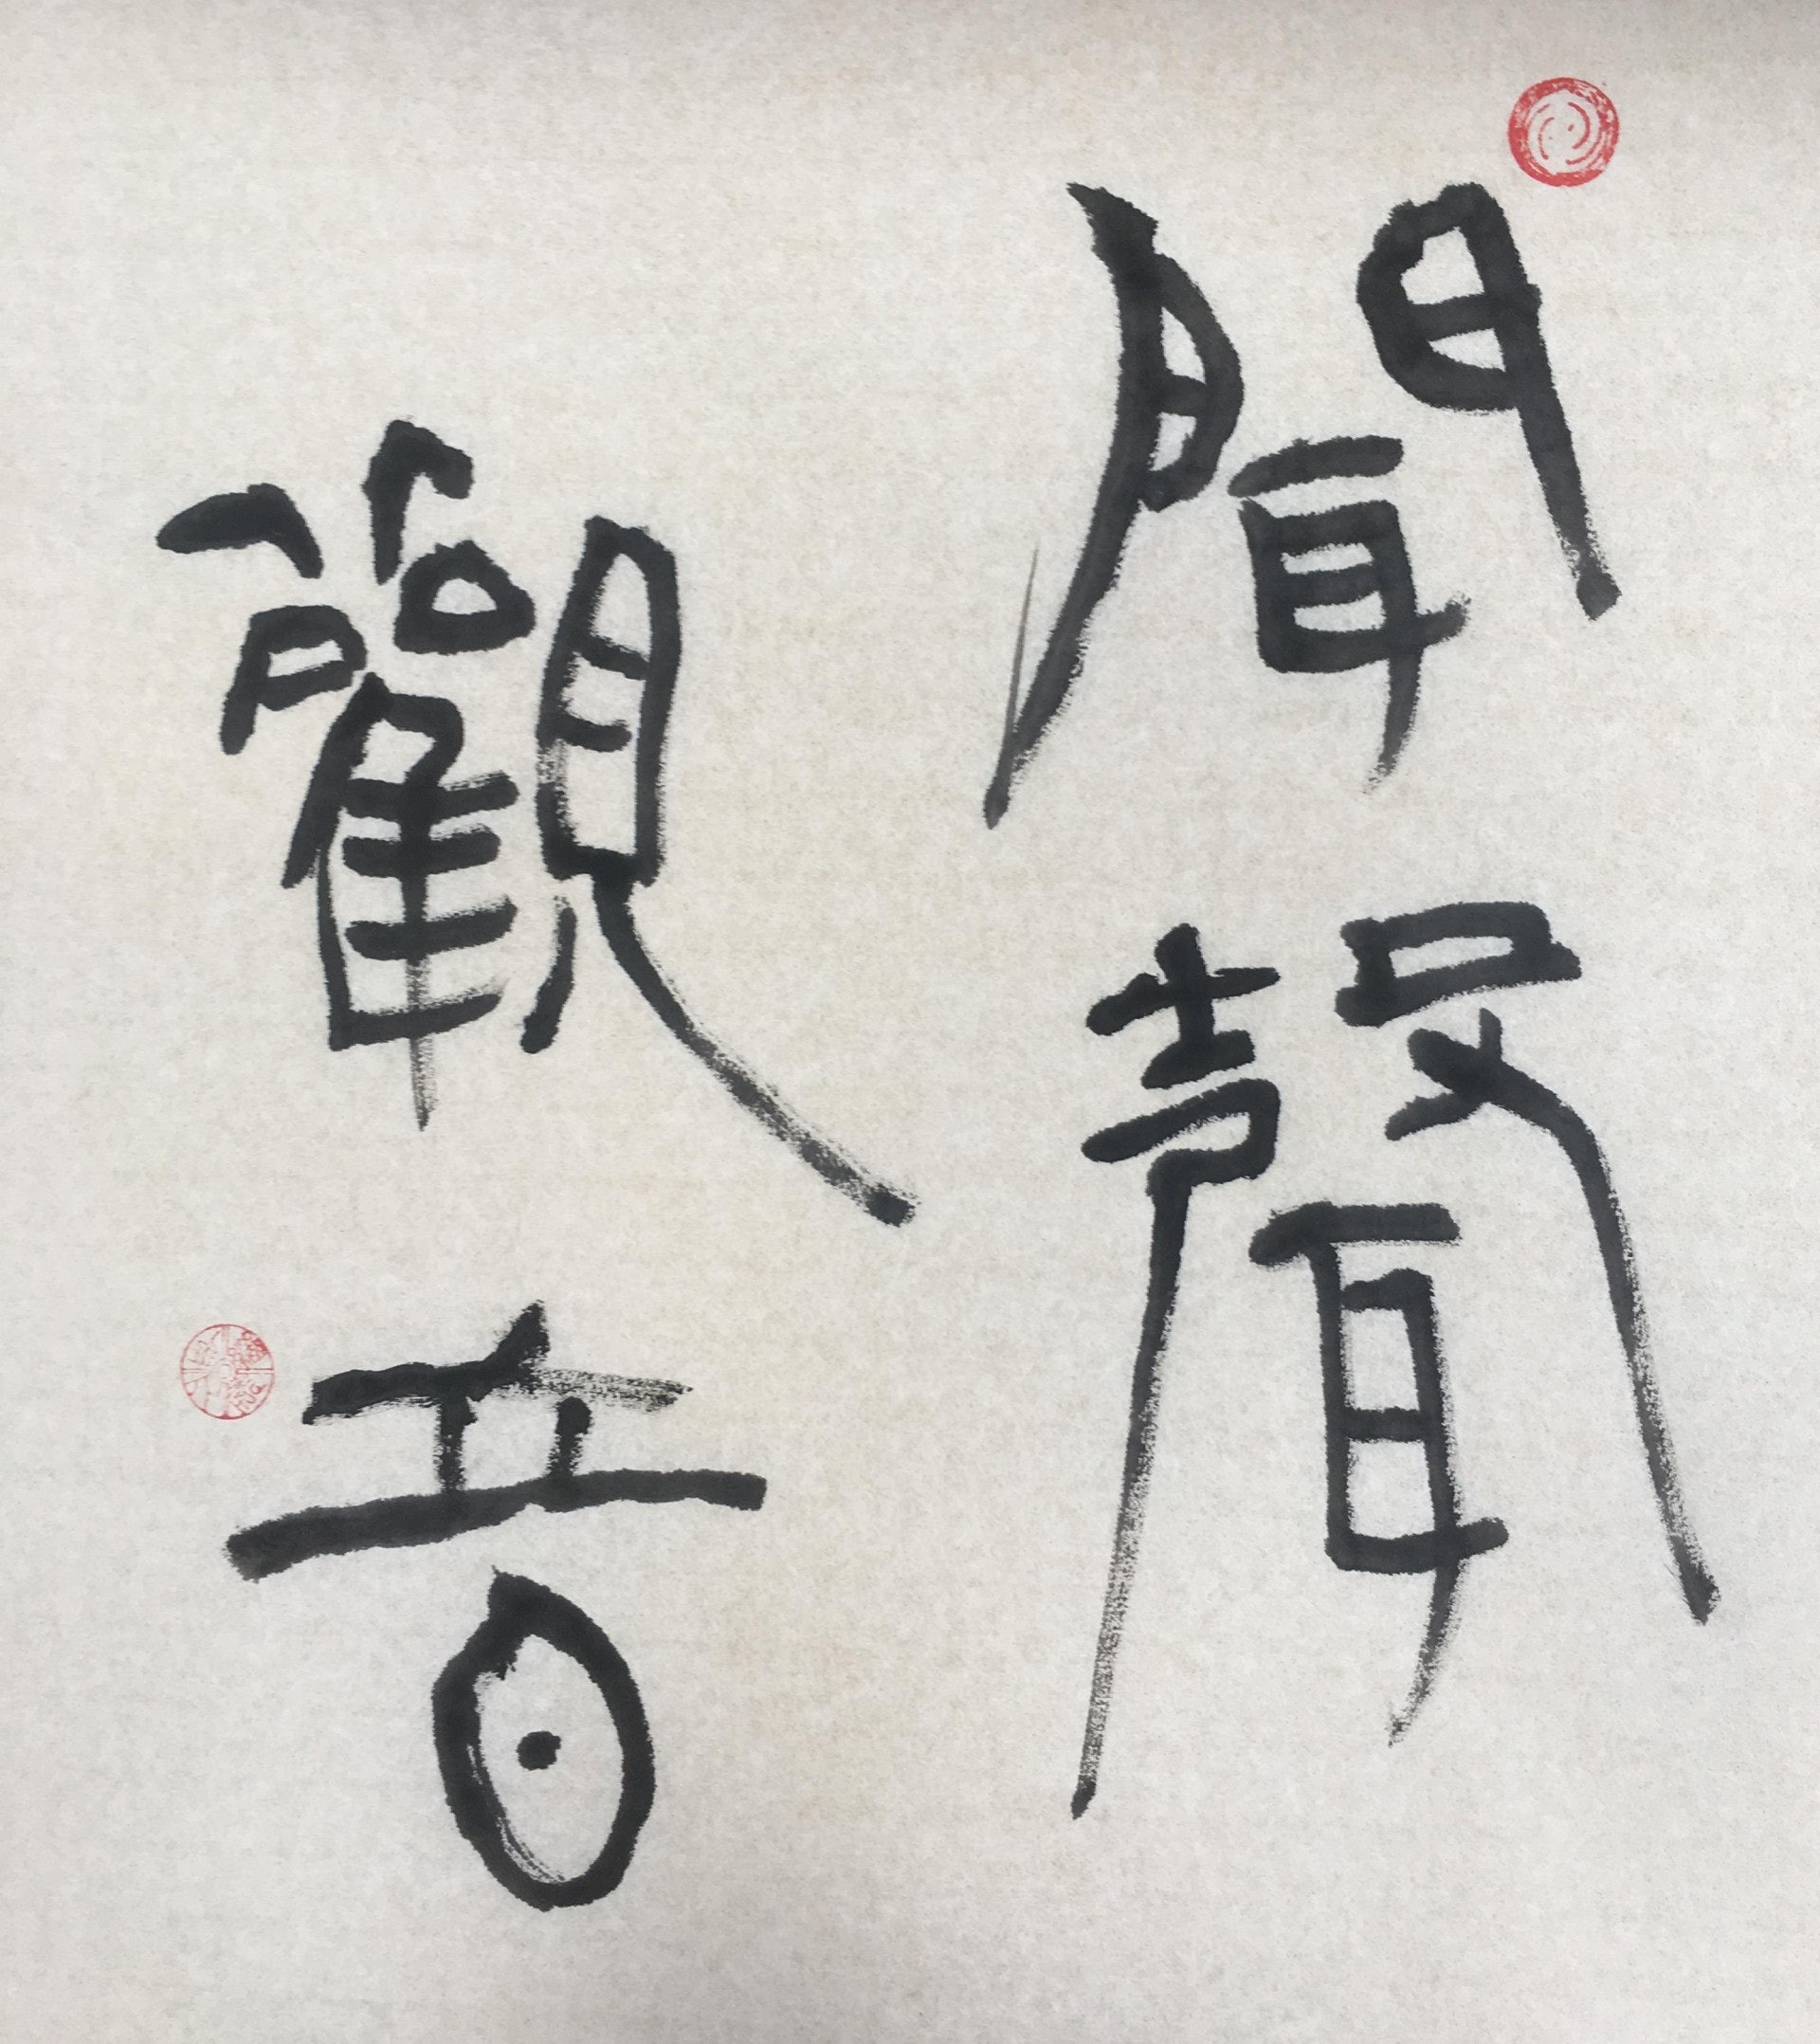 聞聲
觀音